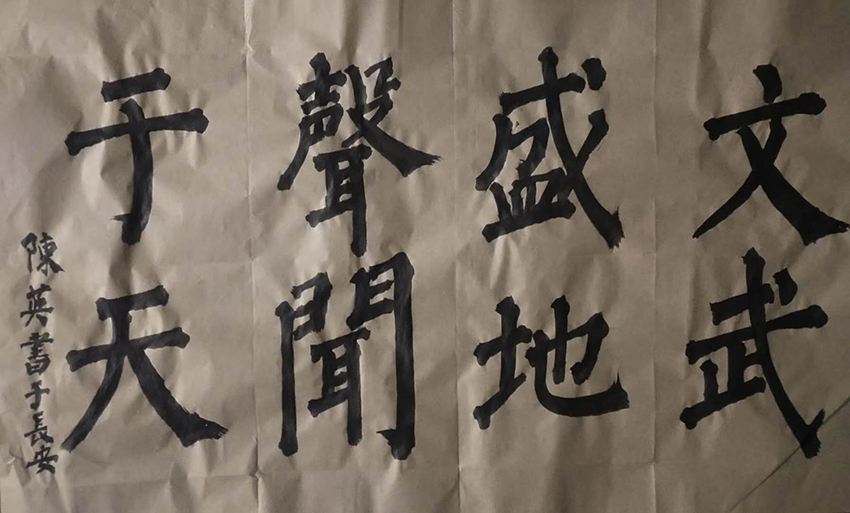 文武
盛地
聲聞
于天
陳英書于長安